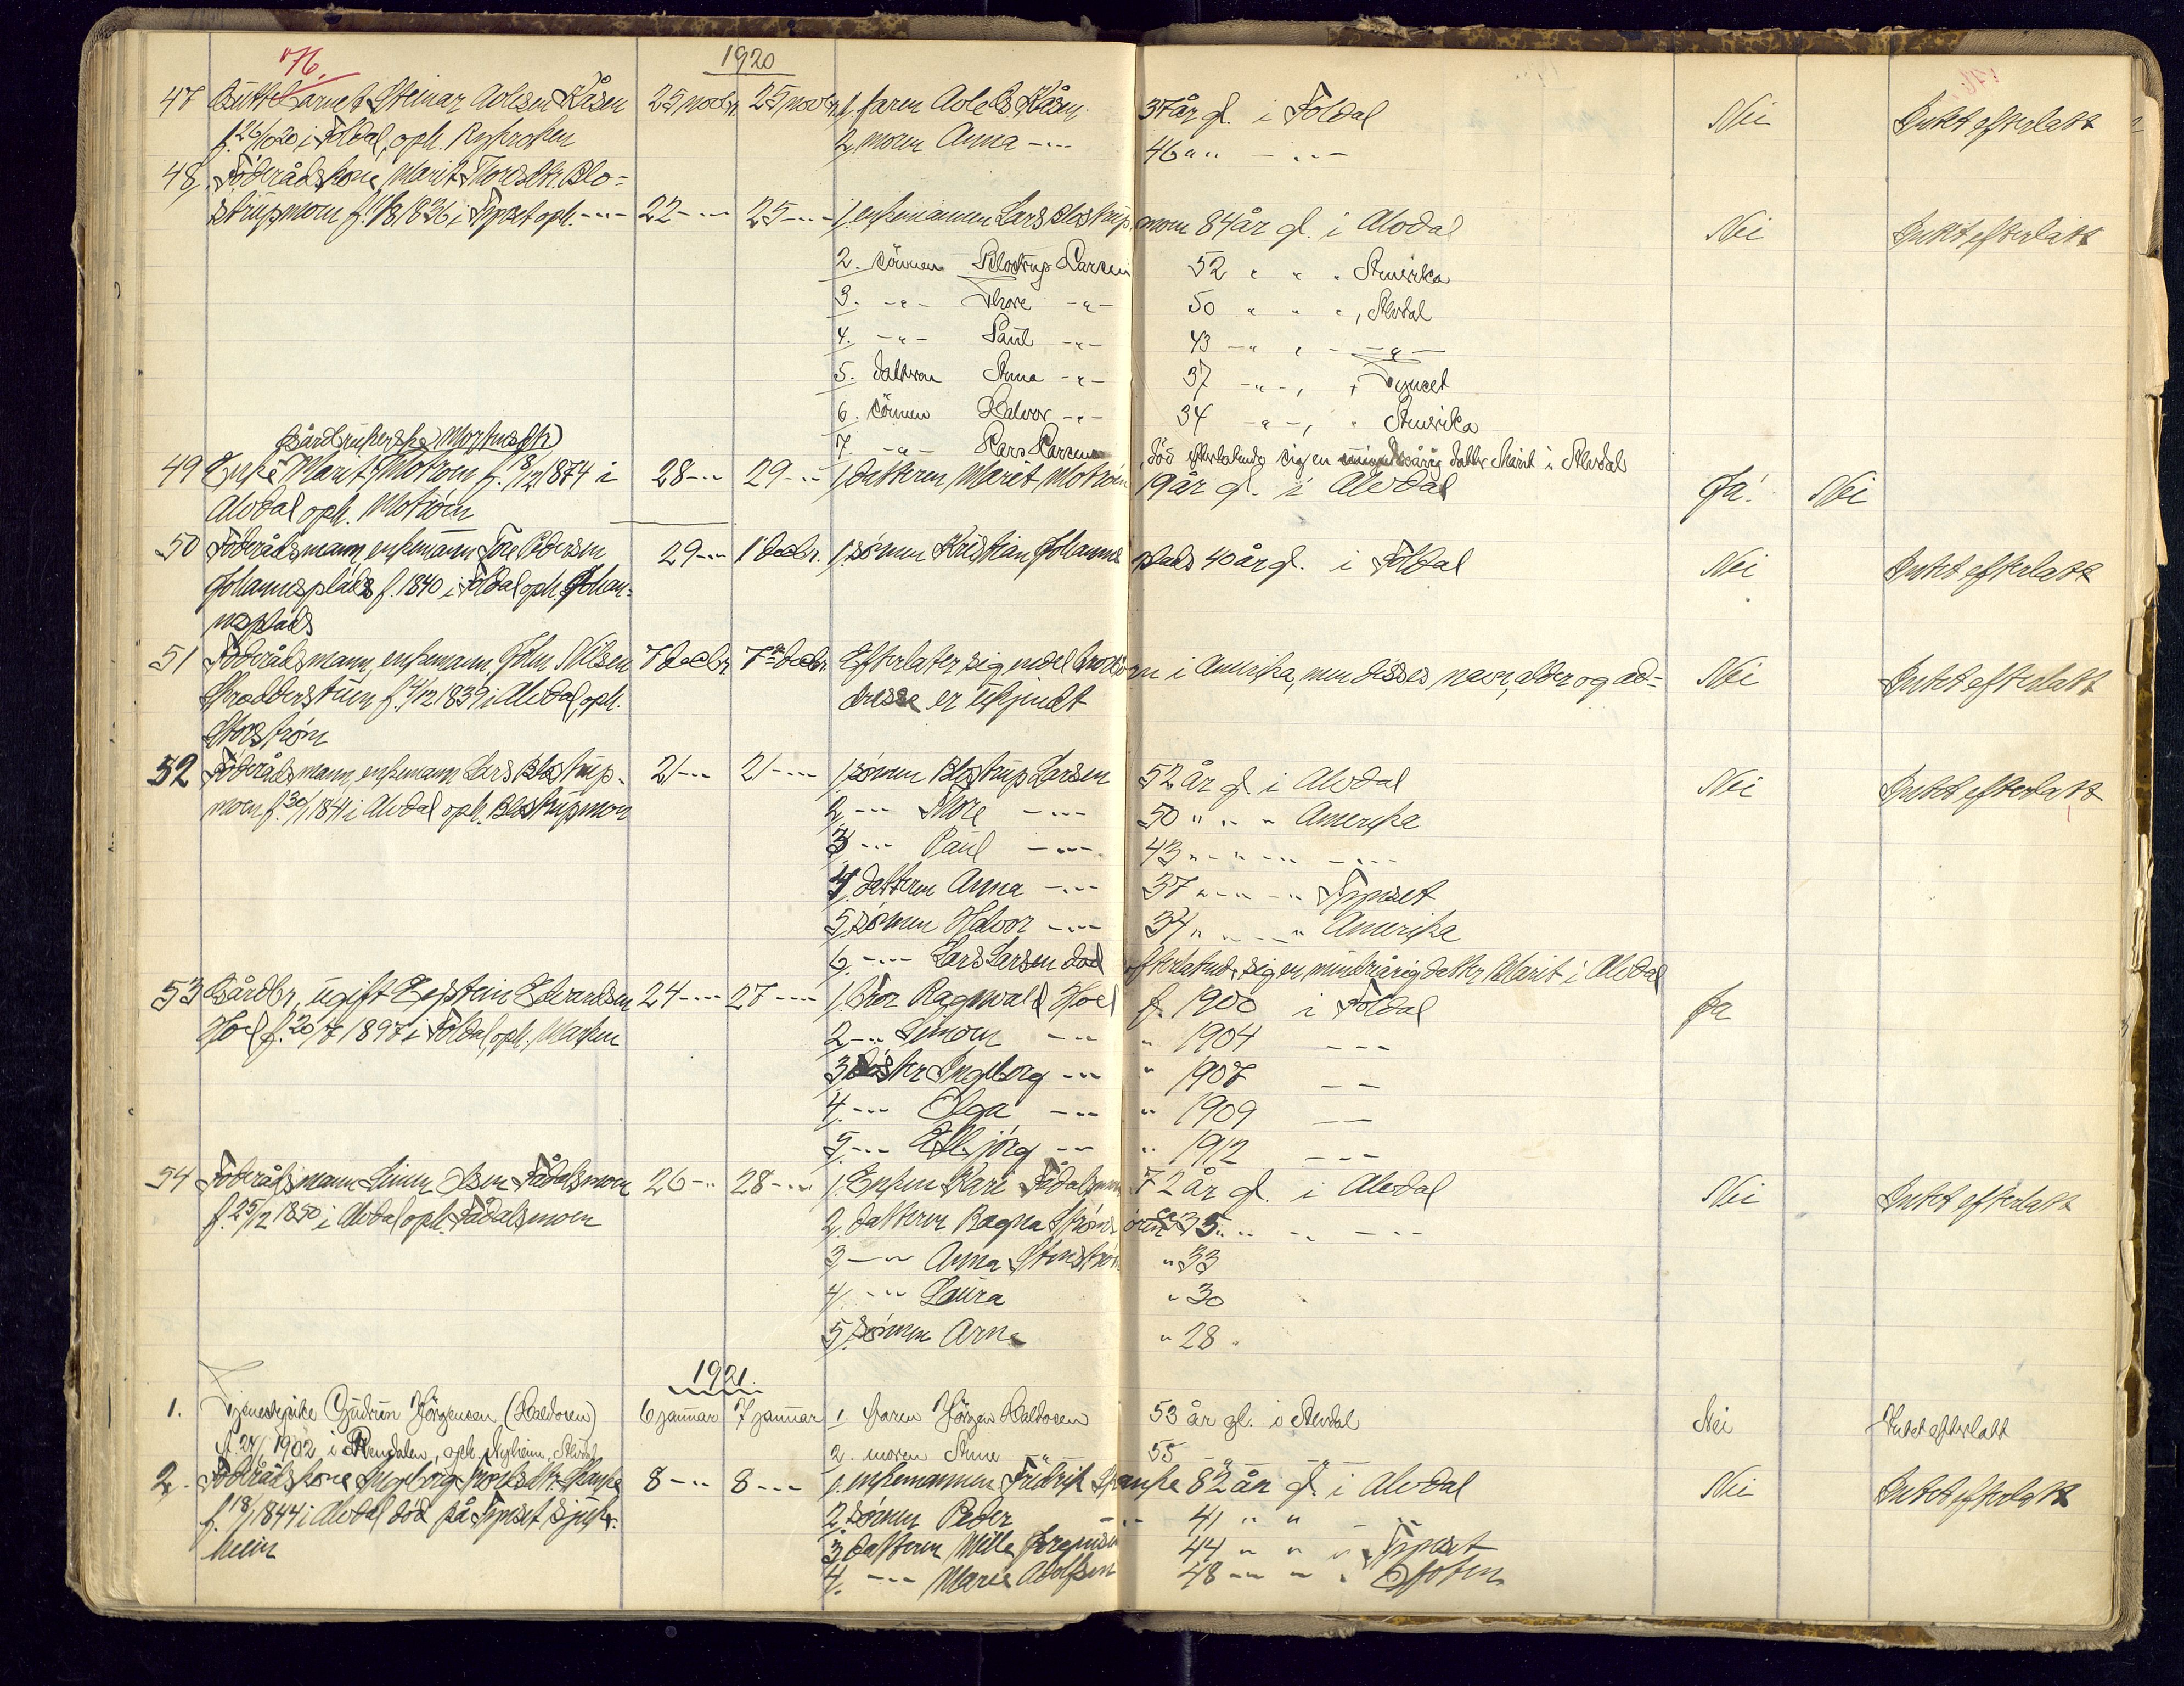 76.
1920
47 Guttebarnet Steinar Adolsen Kåsen 25 novbr. 25 novbr. 1. faren Adole S. Kåsen 37 år gl. i Foldal Nei Intet efterlatt
f. 26/10 20 i Foldal, oph. 2. moren Anna -"- 46 " " - " -
48 Föderådskone Marit Thoresdtr. Blo=
strupmoen f. 11/8 1836 i Tynset oph. -"- 22 -"- 25 -"- 1. enkemannen Lars Blostrupmoen 84 år gl. i Alvdal Nei Intet efterlatt
2. sönnen Blostrup Larsen 52 " " " Amerika
3. -"- Thore -"- 50 " " " , Alvdal
4. -"- Paul -"- 43 -" " - -"-
5. datteren Anna -"- 37 -"- , " Tynset
6. sönnen Halvor -"- 34 -"-, " Amerika
7. -"- Lars Larsen, död efterlatende sig en mindreårig datter Marit i Alvdal
(Gårdbrukerske) Mortensdtr)
49 Enke Marit Motrøen f. 18/12 1874 i 28 -"- 29 -"- 1. datteren Marit Motrøen 19 år gl. i Alvdal Ja! Nei
Alvdal oph. Motrøen
50 Föderådsmann, enkemann Tore Pedersen 29 -"- 1 decbr. 1. sönnen Kristian Johannesplads 40 år gl. i Foldal Nei Intet efterlatt
Johannesplads f. 1840 i Foldal oph. Johan=
nesplads
51 Föderådsmann, enkemann John Nilsen 7 decbr. 7 decbr. Efterlater sig endel i Amerika, men disses navn, alder og ad= Nei Intet efterlatt
f. 4/12 1839 i Alvdal, oph. dresse er ukjendt
Storstrøm
52 Föderådsmann, enkemann Lars Blostrup- 21 -"- 21 -"- 1. sönnen Blostrup Larsen 52 år gl i Alvdal Nei Intet efterlatt
moen f. 30/1 1841 i Alvdal oph. Blostrupmoen 2. -"- Thore -"- 50 " " " Amerika
3. -"- Paul -"- 43 " - " -"- -"-
4. datteren Anna -"- 37 " - " - " Tynset
5. sönnen Halvor -"- 34 " - " Amerika
6. -"- Lars Larsen död efterlatende sig en mindreårig datter Marit i Alvdal
53 Gårdbr., ugift Eystein Edvardsen 24 -"- 27 -"- 1. bror Ragnvald Hoel f. 1900 i Foldal Ja
Hoel f. 20/7 1897 i Foldal, oph. Marken 2. -"- Simon -"- " 1904 -"-
3. søster Ingeborg -"- " 1907 -"-
4. -"- Olga -"- " 1909 -"-
5. -"- Eldbjørg -"- " 1912 -"-
54 Föderådsmann Simen Olsen Fådalsmoen 26 -"- 28 -"- 1. Enken Kari Fådalsmoen 72 år gl. i Alvdal Nei Intet efterlatt
f. 25/2 1850 i Alvdal oph. Fådalsmoen 2. datteren Ragna ca 35 " " " - " -
3. -"- Anna " 33
4. -"- Laura " 30
5. sönnen Arne " 28
1921.
1. Tjenestepike Gudrun Jörgensen (Haldosen) 6 januar 7 januar 1. faren Jörgen Haldosen 53 år gl. i Alvdal Nei Intet efterlatt
f. 24/1 1902 i Rendalen, oph. Nyheim, Alvdal 2. moren Anne -"- 55 -"- -"-
2. Föderådskone Ingeborg 8 -"- 8 -"- 1. enkemannen Fredrik 82 år gl. i Alvdal Nei Intet efterlatt
f. 18/1 1844 i Alvdal död på Tynset sjuke- 2. sönnen Peder -"- 41 " " - " -
heim 3. datteren Mille 44 " " " Tynset
4. -"- Marie Adolfsen 48 -" " " Østoten